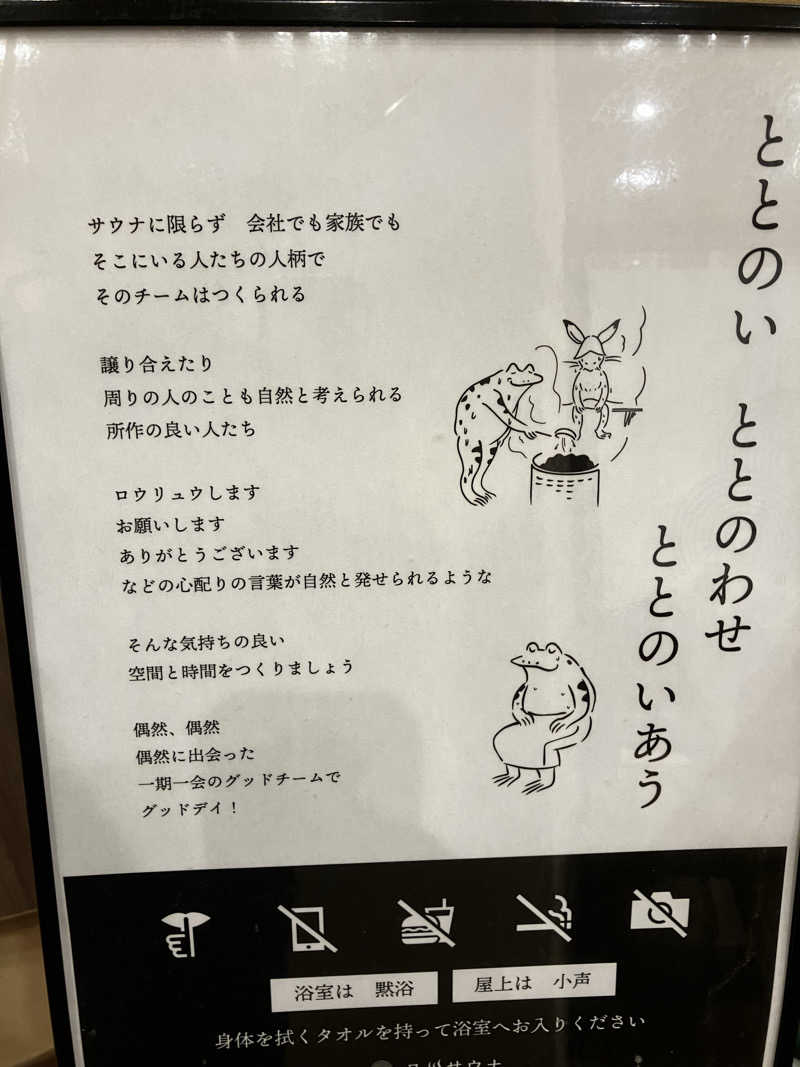 ととのい　ととのわせ
ととのいあう
サウナに限らず　会社でも家族でも
そこにいる人たちの人柄で
そのチームはつくられる
譲り合えたり
周りの人のことも自然と考えられる
所作の良い人たち
ロウリュウします
お願いします
ありがとうございます
などの心配りの言葉が自然と発せられるような
そんな気持ちの良い
空間と時間をつくりましょう
偶然、偶然
偶然に出会った
一期一会のグッドチームで
グッドデイ！
浴室は　黙浴
屋上は　小声
身体を拭くタオルを持って浴室へお入りください
サウナ